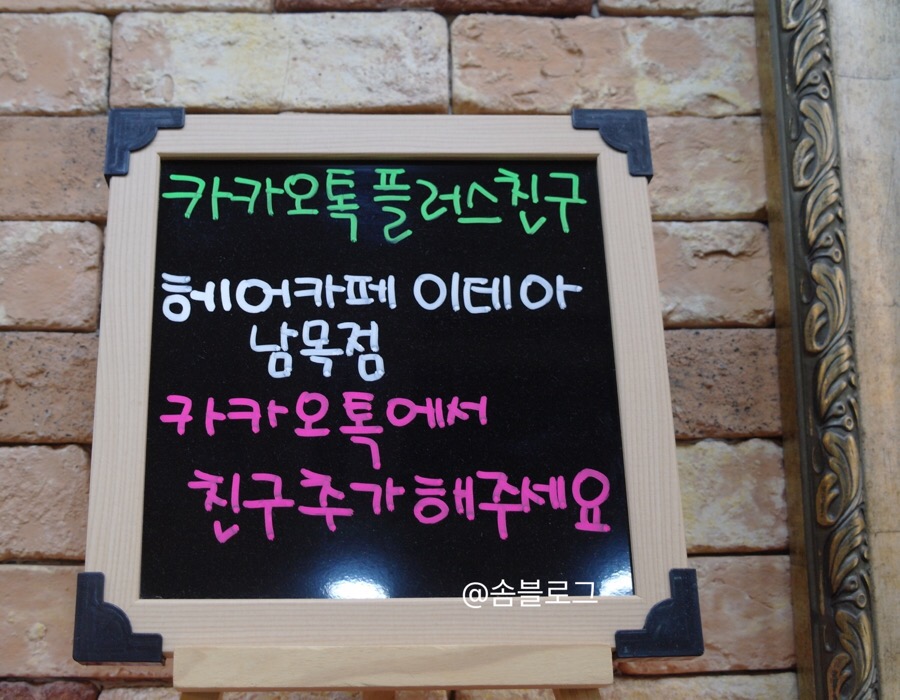 카카오톡 플러스친구
헤어카페 이테아
남목점
카카오톡에서
친구추가 해주세요
@솜블로그